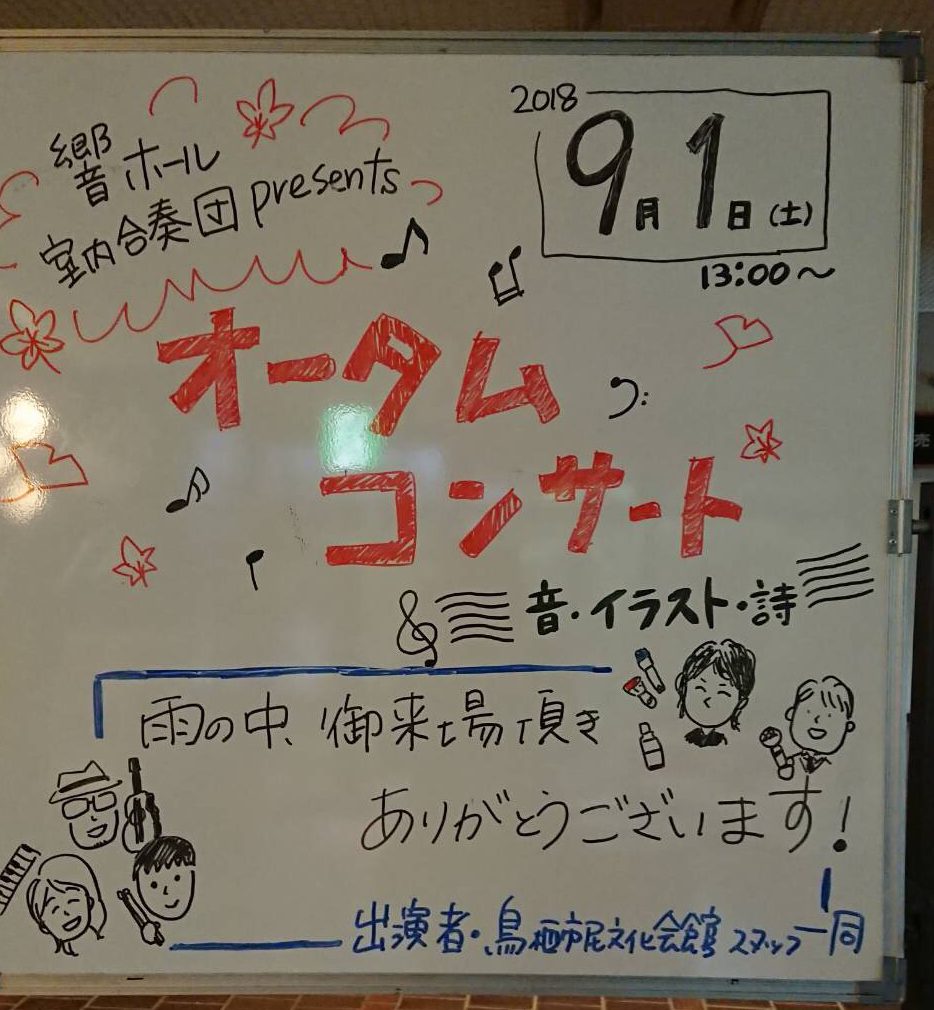 響ホール
室内合奏団 presents
2018
9月1日(土)
13:00〜
オータム
コンサート
音・イラスト・詩
雨の中、御来場頂き
ありがとうございます!
出演者・鳥栖市民文化会館 スタッフ一同
売